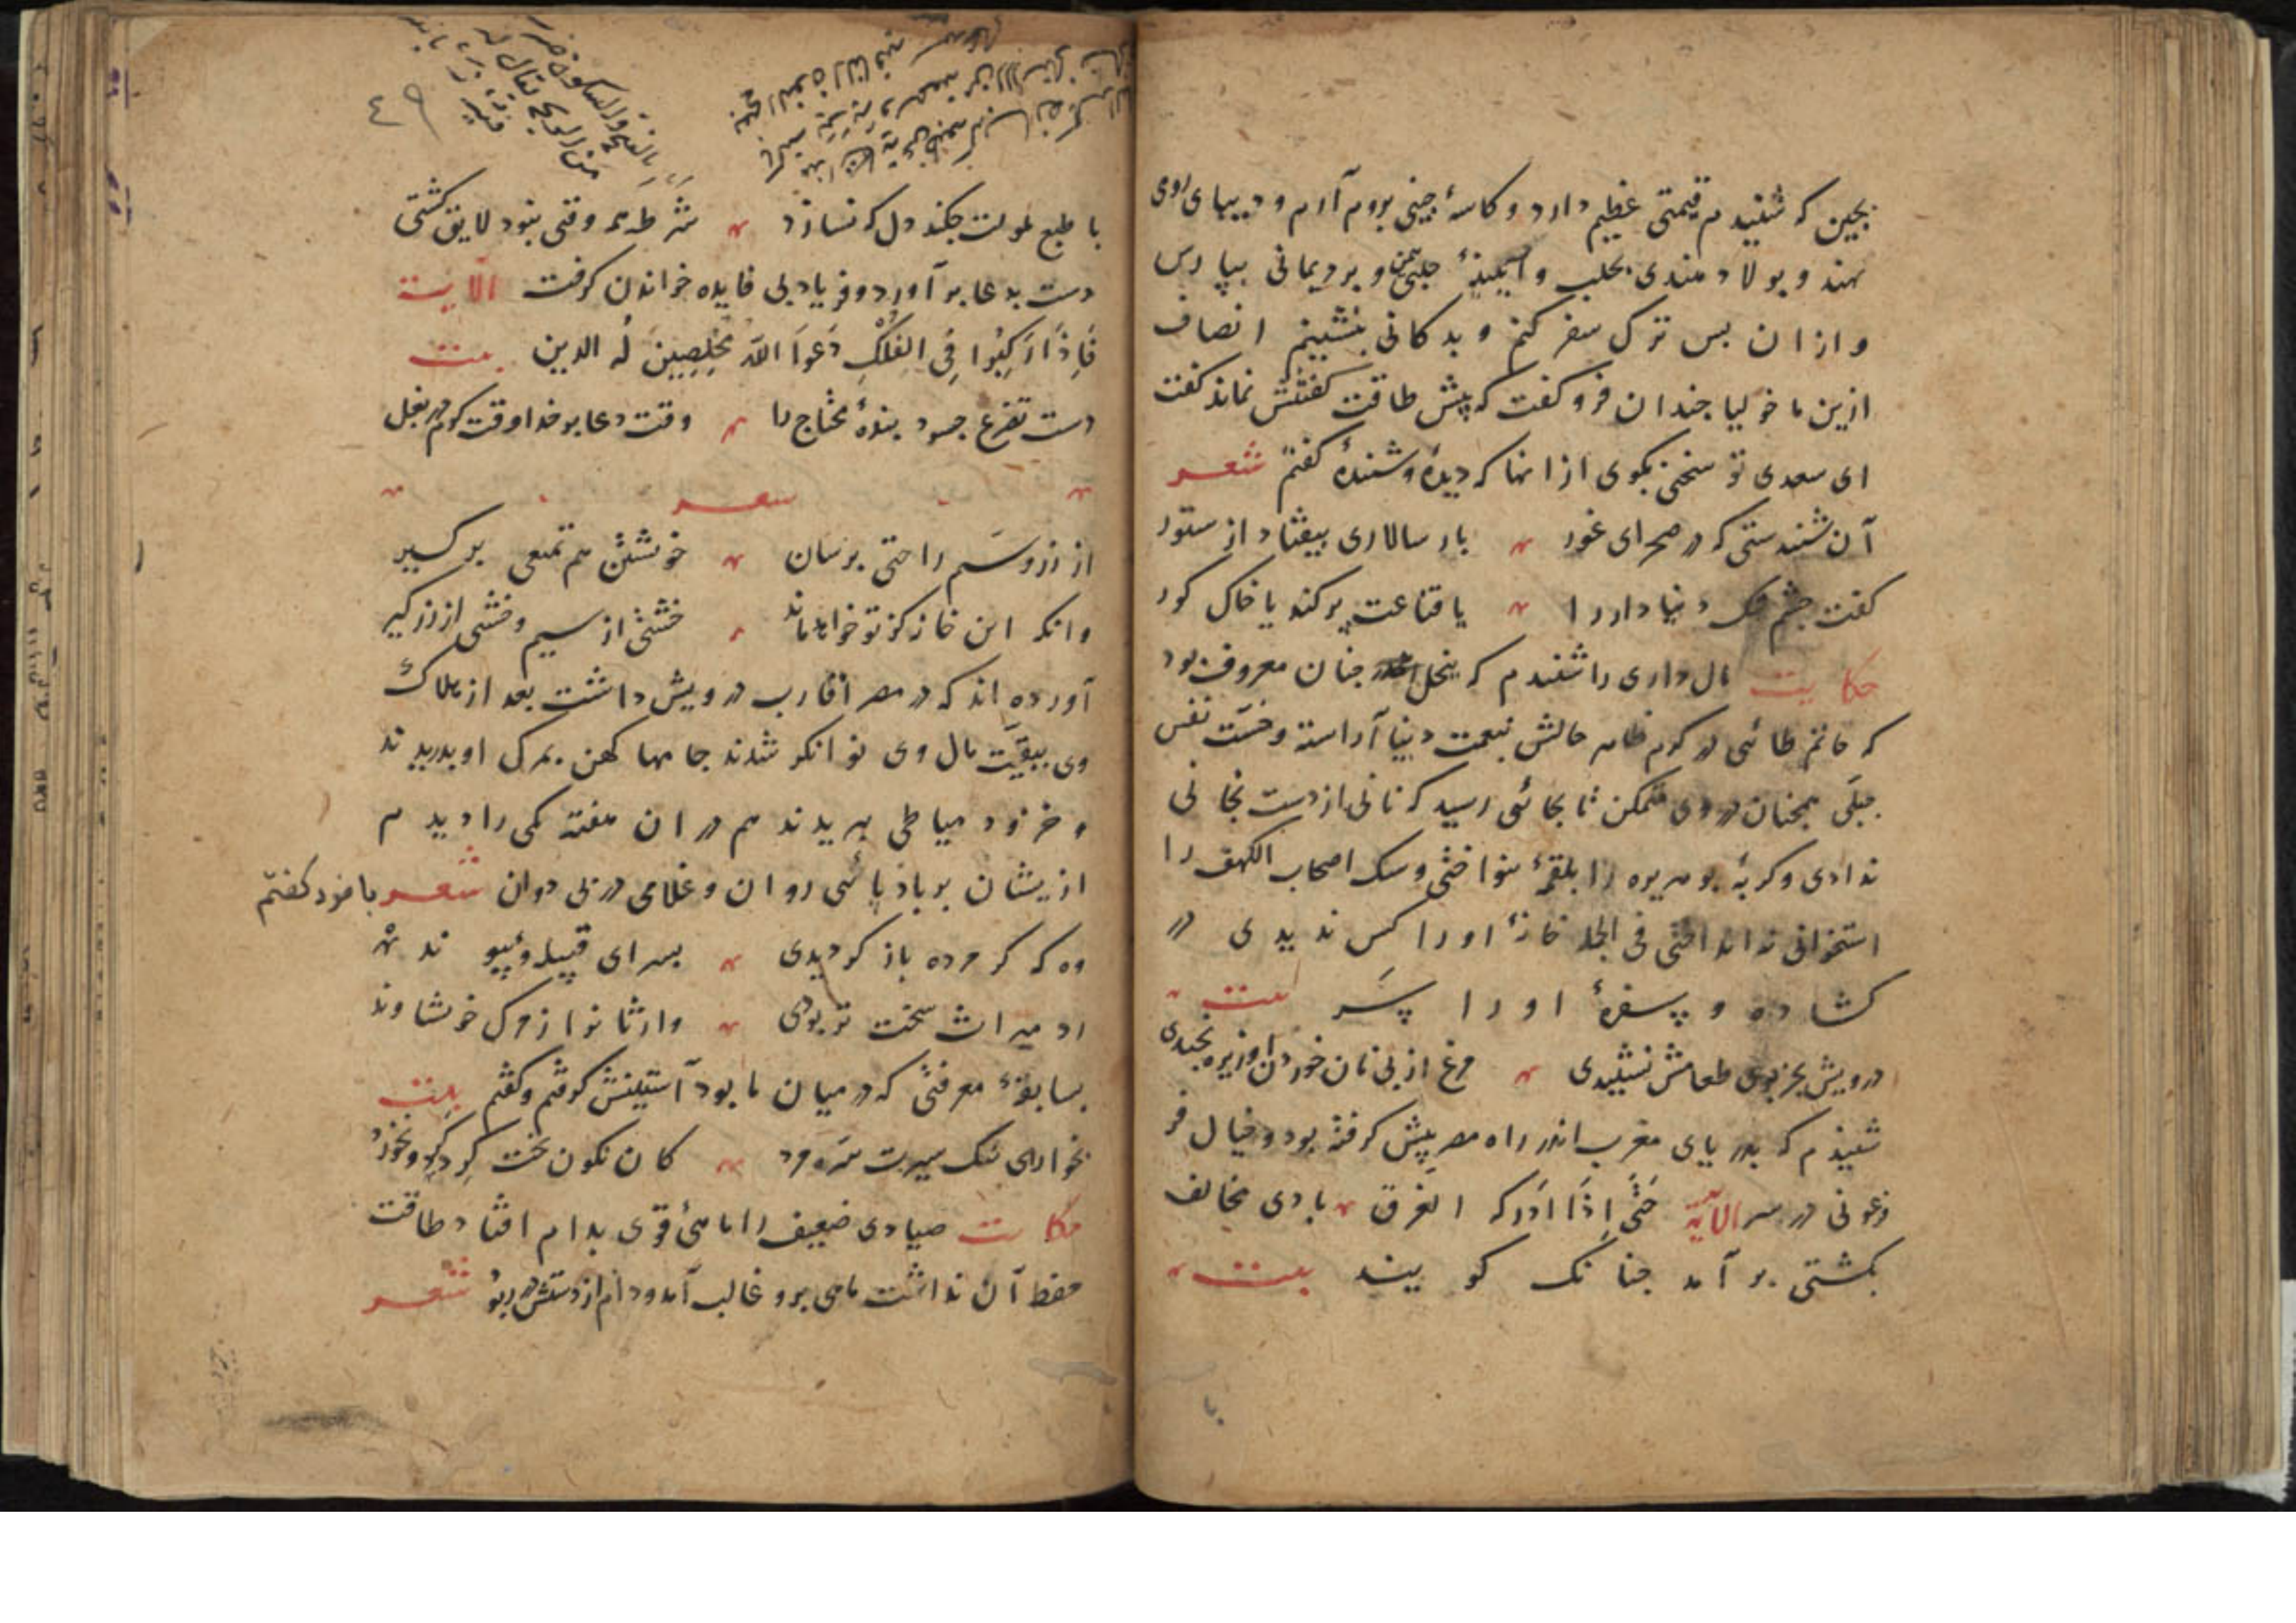 بچین که شنیدم قیمتی عظیم دارد و کاسهٔ چینی بروم آرم و دیبای رومی
بهند و پولاد هندی بحلب و آبگینهٔ حلبی بیمن و برد یمانی بپارس
و ازان بس ترک سفر کنم و بدکانی بنشینم انصاف
ازین ماخولیا جندان فرو کفت که بیش طاقت کفتنش نماند کفت
ای سعدی تو سخنی بکوی ازانها که دیدهٔ و شنیدهٔ کفتم شعر
آن شنیدستی که در صحرای غور بار سالاری بیفتاد از ستور
کفت چشم تنک دنیا دار را یا قناعت پر کند یا خاک کور
حکایت مال داری را شنیدم که ببخل اندر چنان معروف بود
که حاتم طائی در کرم ظاهر حالش بنعمت دنیا آراسته و خسّت نفس
جبلّی همچنان در وی متمکن تا بجائی رسید که نانی از دست بجانی
ندادی و کربهٔ بوهریره را بلقمهٔ ننواختی و سک اصحاب الکهف را
استخوانی نه انداختی فی الجمله خانهٔ او را کس ندیدی در
کشاده و سفرهٔ او را سَر بیت
درویش بجز بوی طعامش نشنیدی مرغ از پی نان خوردن او ریزه نچیدی
شنیدم که بدریای مغرب اندر راه مصر پیش کرفته بود و خیال فر
عونی در سر الآیة حَتّی اِذَا اَدرکه الغرق بادی مخالف
بکشتی بر آمد چنانک کویند بیت
با طبع ملولت چکند دل که نسازد شَرطه همه وقتی نبود لایق کشتی
دست بدعا بر آورد و فریاد بی فایده خواندن کرفت الآیت
فَاِذَا رَکِبُوا فِی الفُلْکِ دَعَوَا اللّٰهَ مُخْلِصِینَ لَه الدین بیت
دست تضرع چه سود بندهٔ محتاج را وقت دعا بر خدا وقت کرم در بغل
شعر
از زر و سیم راحتی برسان خویشتن هم تمتعی برکیر
وانکه این خانه کز تو خواهد ماند خشتی از سیم و خشتی از زر کیر
آورده اند که در مصر اقارب درویش داشت بعد از هلاک
وی ببقیّت مال وی توانکر شدند جامها کهن بمرک او بدریدند
و خز و دمیاطی ببریدند هم در ان هفته یکی را دیدم
ازیشان بر باد پائی روان و غلامی در پی دوان شعر با خود کفتم
وه که کر مرده باز کردیدی بسرای قبیله و پیوند
رد میراث سخت تر بودی وارثانرا ز مرک خویشاوند
بسابقهٔ معرفتی که در میان ما بود آستینش کرفتم و کفتم بیت
بخور ای نیک سیرت سَره مرد کان نکون بخت کِرد کرد و نخورد
حکایت صیادی ضعیف را ماهئ قوی بدام افتاد طاقت
حفظ آن نداشت ماهی برو غالب آمد و دام از دستش در ربود شعر